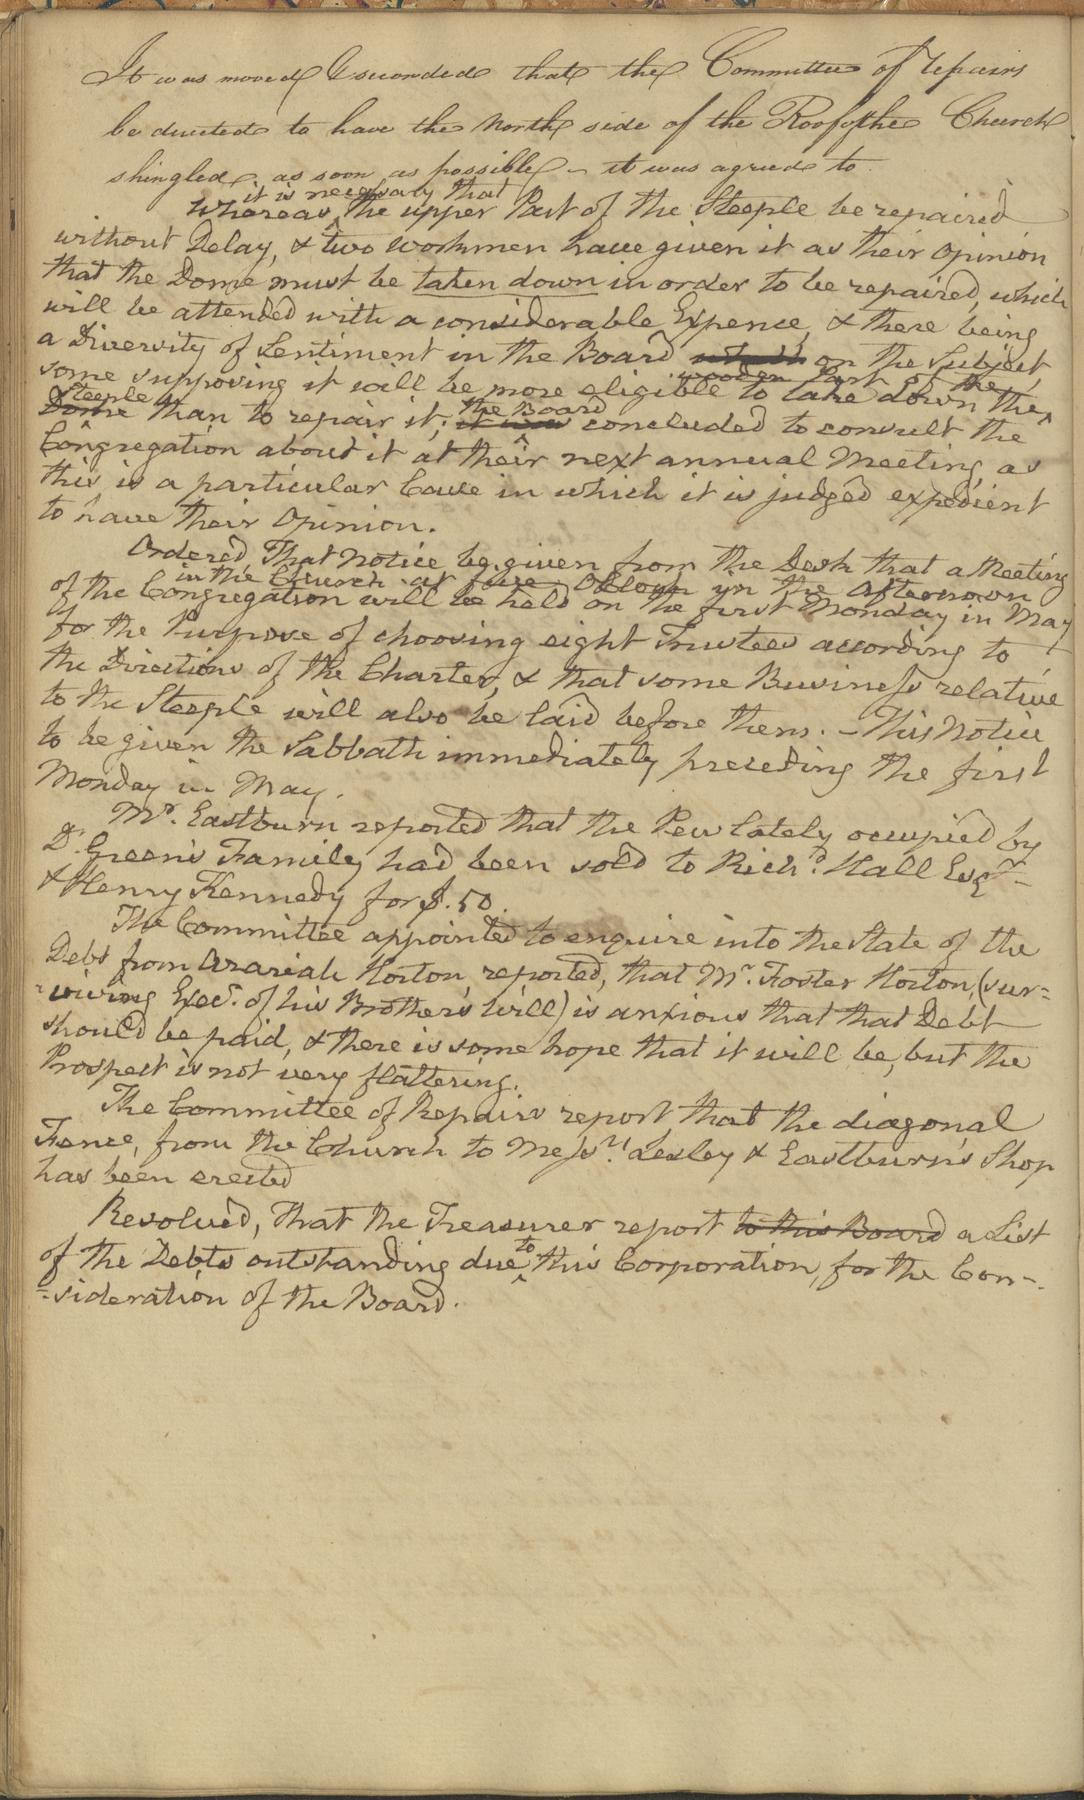 It was moved & seconded that the Committee of repairs
be directed to have the North side of the Roof of the Church
shingled as soon as possible – it was agreed to
it is necessary that
Whereas ^ the upper Part of the Steeple be repaired
without Delay, & two workmen have given it as their opinion
that the Dome must be taken down in order to be repaired, which
will be attended with a considerable Expence, & there being
a Diversity of Sentiment in the Board which on the Subject,
wooden Part of the
some supposing it will be more eligible to take down the ^
Steeple the Board
Dome than to repair it; it was ^ concluded to consult the
Congregation about it at their next annual Meeting, as
this is a particular Case in which it is judged expedient
to have their Opinion.
Ordered That Notice be given from the Desk that a Meeting
in the Church at five Oclock in the Afternoon
of the Congregation will be held on the first Monday in May
for the Purpose of choosing eight Trustees according to
the Directions of the Charter, & that some Business relative
to the Steeple will also be laid before them. – This Notice
to be given the Sabbath immediately preceding the first
Monday in May.
Mr. Eastburn reported that the Pew lately occupied by
Dr. Green's Family had been sold to Richd. Hall Esqr
& Henry Kennedy for $.50.
The Committee appointed to enquire into the State of the
Debt from Azariah Horton, reported, that Mr. Foster Horton, (sur=
viving Execr. of his Brother's Will) is anxious that that Debt
should be paid, & there is some hope that it will be, but the
Prospect is not very flattering.
The Committee of Repairs report that the diagonal
Fence, from the Church to Messrs. Lesley & Eastburn's Shop
has been erected
Resolved, That the Treasurer report to this Board a List
to
of the Debts outstanding due ^ this Corporation, for the Con-
=sideration of the Board.